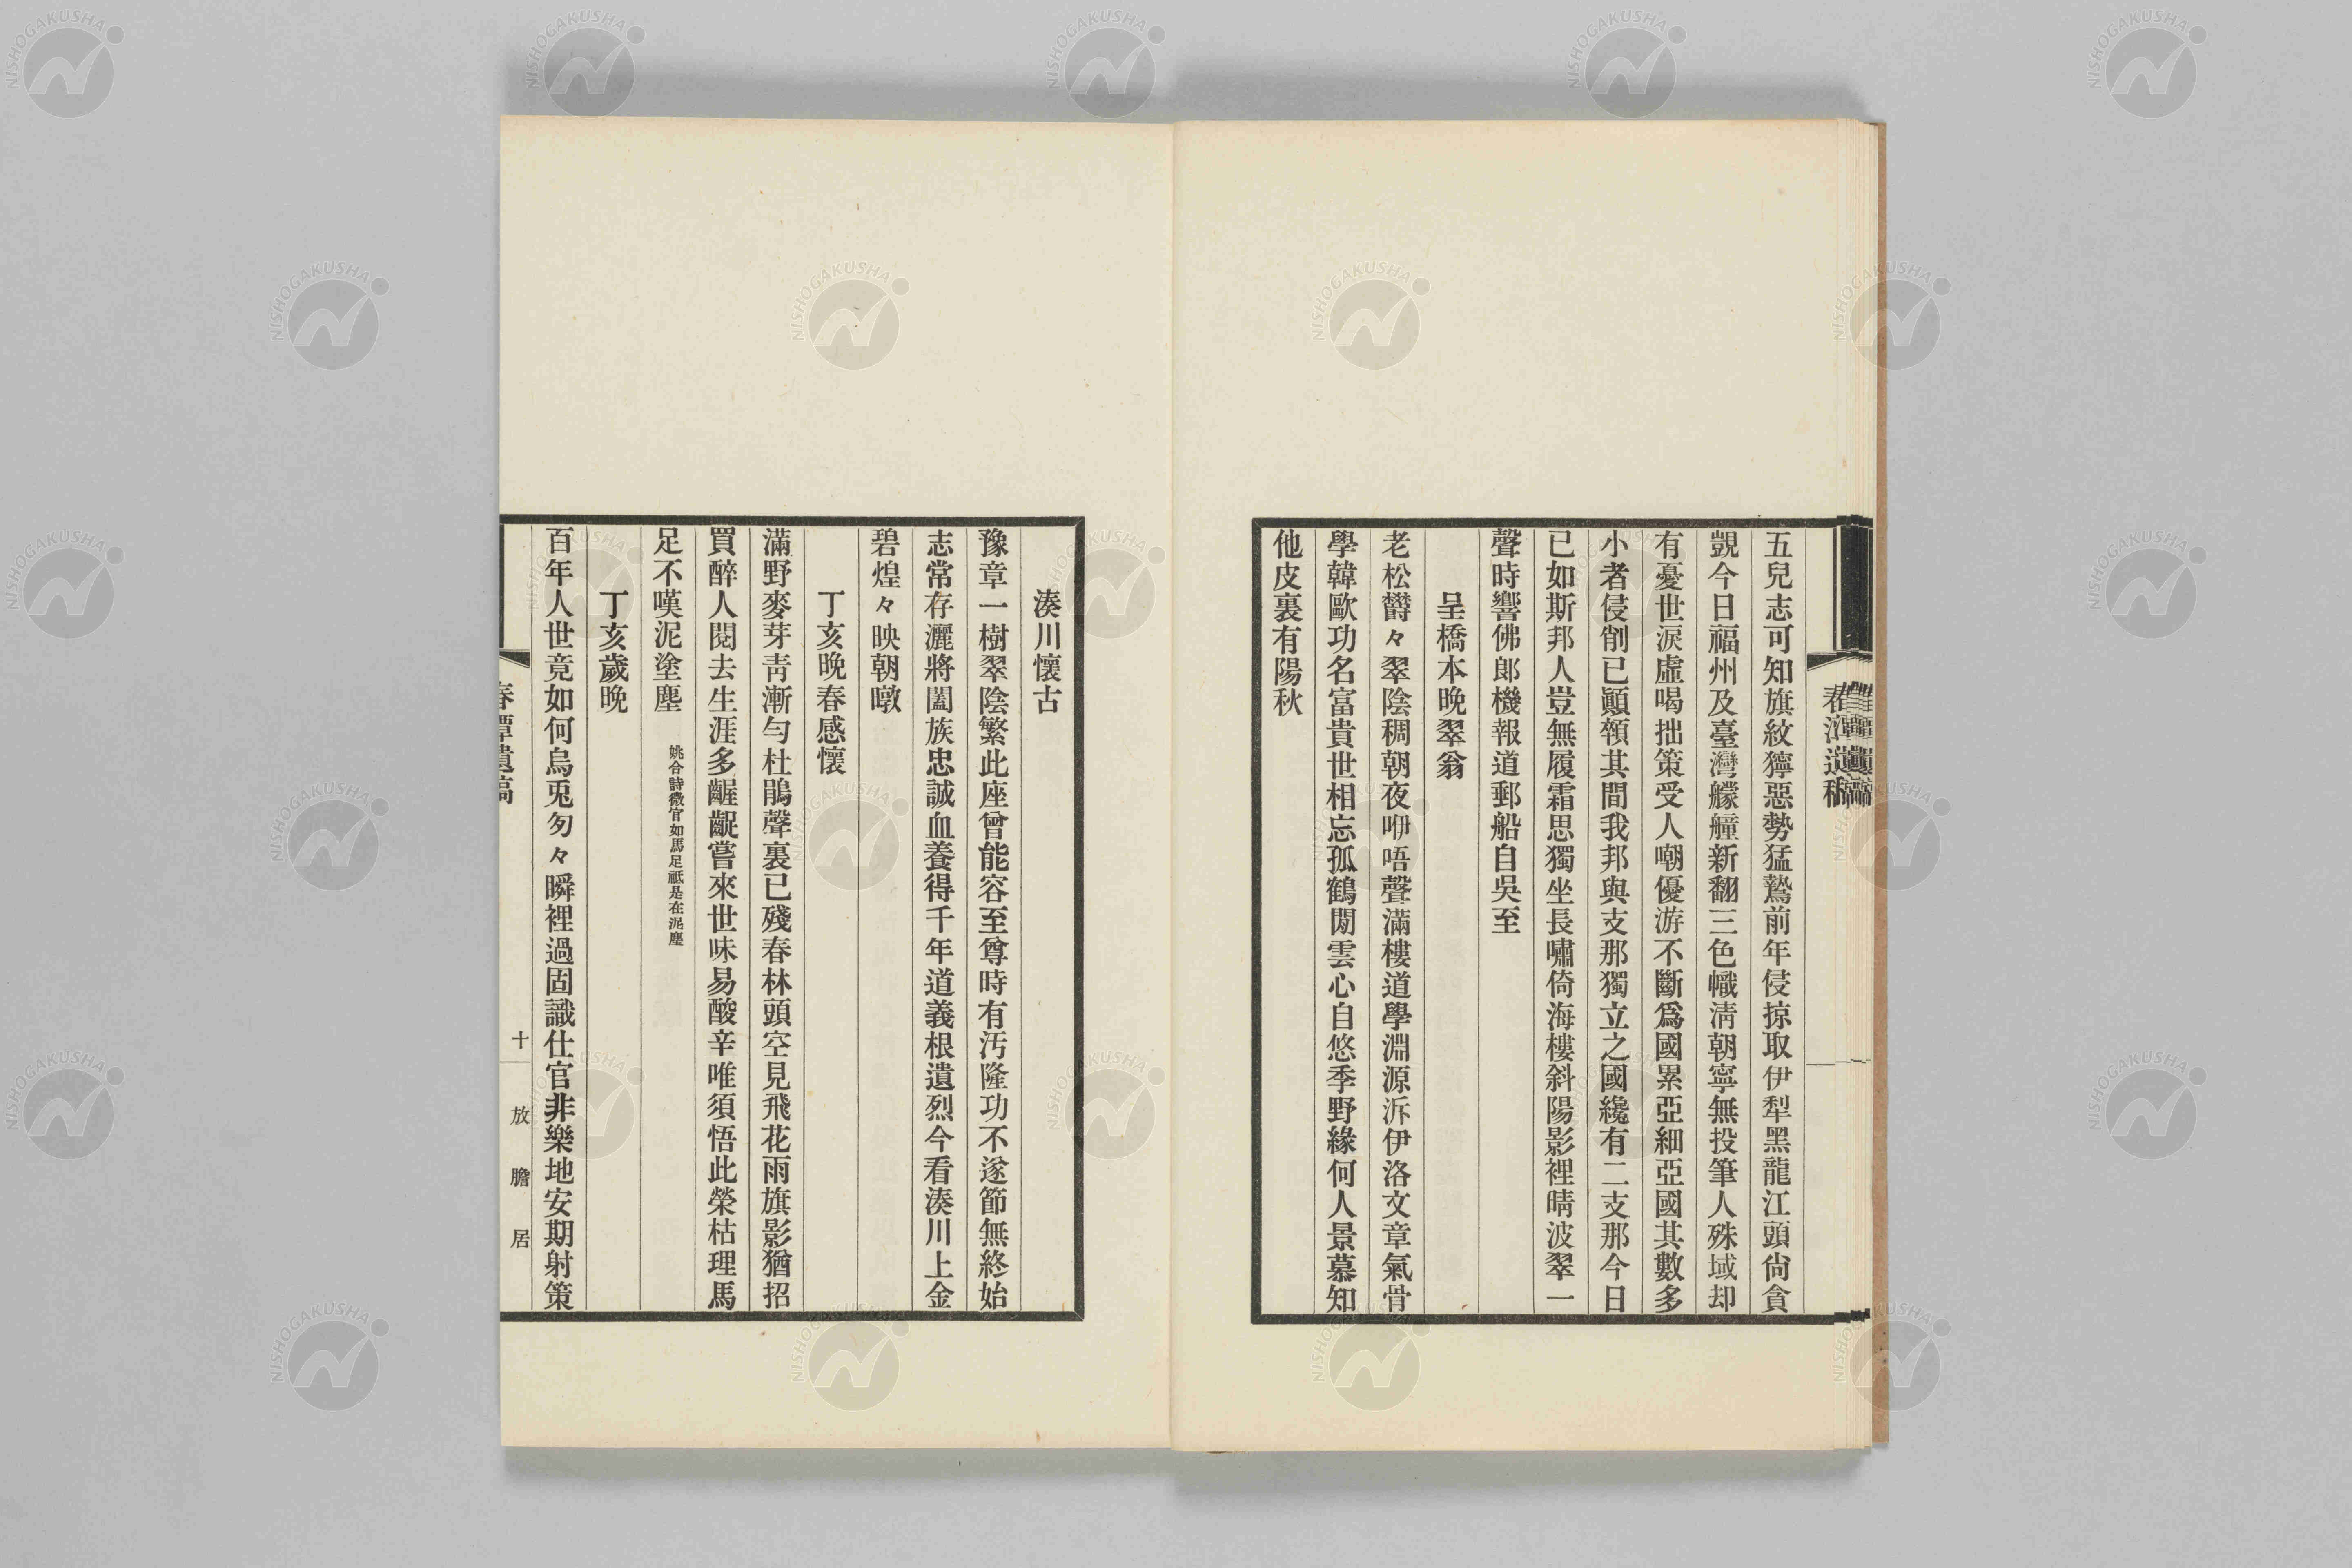 五兒志可知旗紋獰惡勢猛鷙前年侵掠取伊犁黑龍江頭尙貪
覬今日福州及臺灣艨艟新翻三色幟淸朝寧無投筆人殊域却
有憂世淚虛喝拙策受人嘲優游不斷爲國累亞細亞國其數多
小者侵削已顚顇其間我邦與支那獨立之國纔有二支那今日
已如斯邦人豈無履霜思獨坐長嘯倚海樓斜陽影裡晴波翠一
聲時響佛郞機報道郵船自吳至
呈橋本晚翠翁
老松欝々翠陰稠朝夜咿唔聲滿樓道學淵源泝伊洛文章氣骨
學韓歐功名富貴世相忘孤鶴閒雲心自悠季野緣何人景慕知
他皮裏有陽秋
湊川懷古
豫章一樹翠陰繁此座曾能容至尊時有汚隆功不遂節無終始
志常存灑將闔族忠誠血養得千年道義根遺烈今看湊川上金
碧煌々映朝暾
丁亥晚春感懷
滿野麥芽靑漸勻杜鵑聲裏已殘春林頭空見飛花雨旗影猶招
買醉人閱去生涯多齷齪嘗來世味易酸辛唯須悟此榮枯理馬
足不嘆泥塗塵 姚合詩微官如馬足祇是在泥塵
丁亥歲晚
百年人世竟如何烏兎匆々瞬裡過固識仕官非樂地安期射策
春潭遺稿 十 放膽居
NISHOGAKUSHA